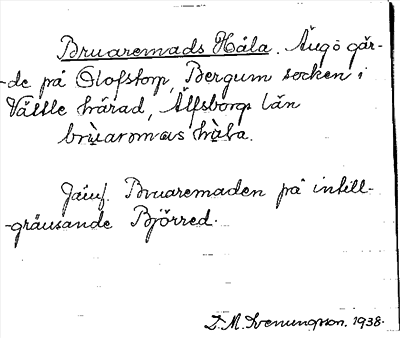 Bruaremads Håla. Ängö går-
-de på Olofstorp, Bergum socken i
Vättle härad, Älfsborgs län
brùaromas hàla.
Jämf. Bruaremaden på intill-
-gränsande Björred.
D. M. Svenungsson. 1938.